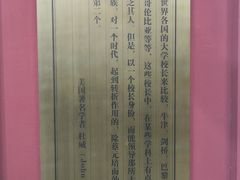 世界各国的大学校长来比较，牛津、剑桥、巴黎
哥伦比亚等等，这些校长中，在某些学科上有卓
之其人，但是，以一个校长身份，而能领导那所大
族、对一个时代，起到转折作用的，除蔡元培而
第二个。
美国著名学者 杜威 （John